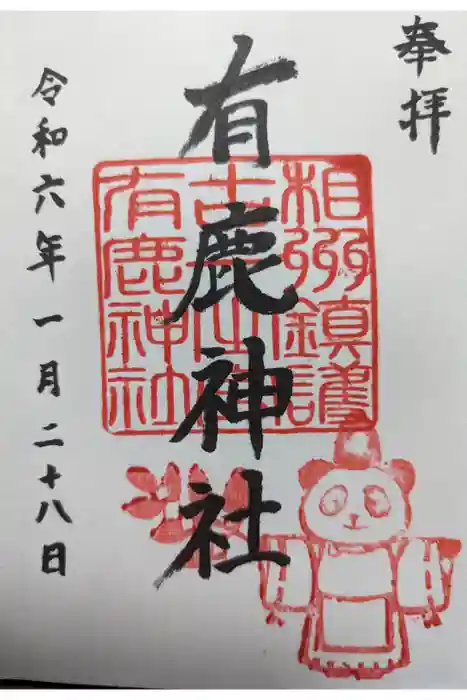 奉拝
有鹿神社
令和六年一月二十八日
相州鎮護
有鹿神社